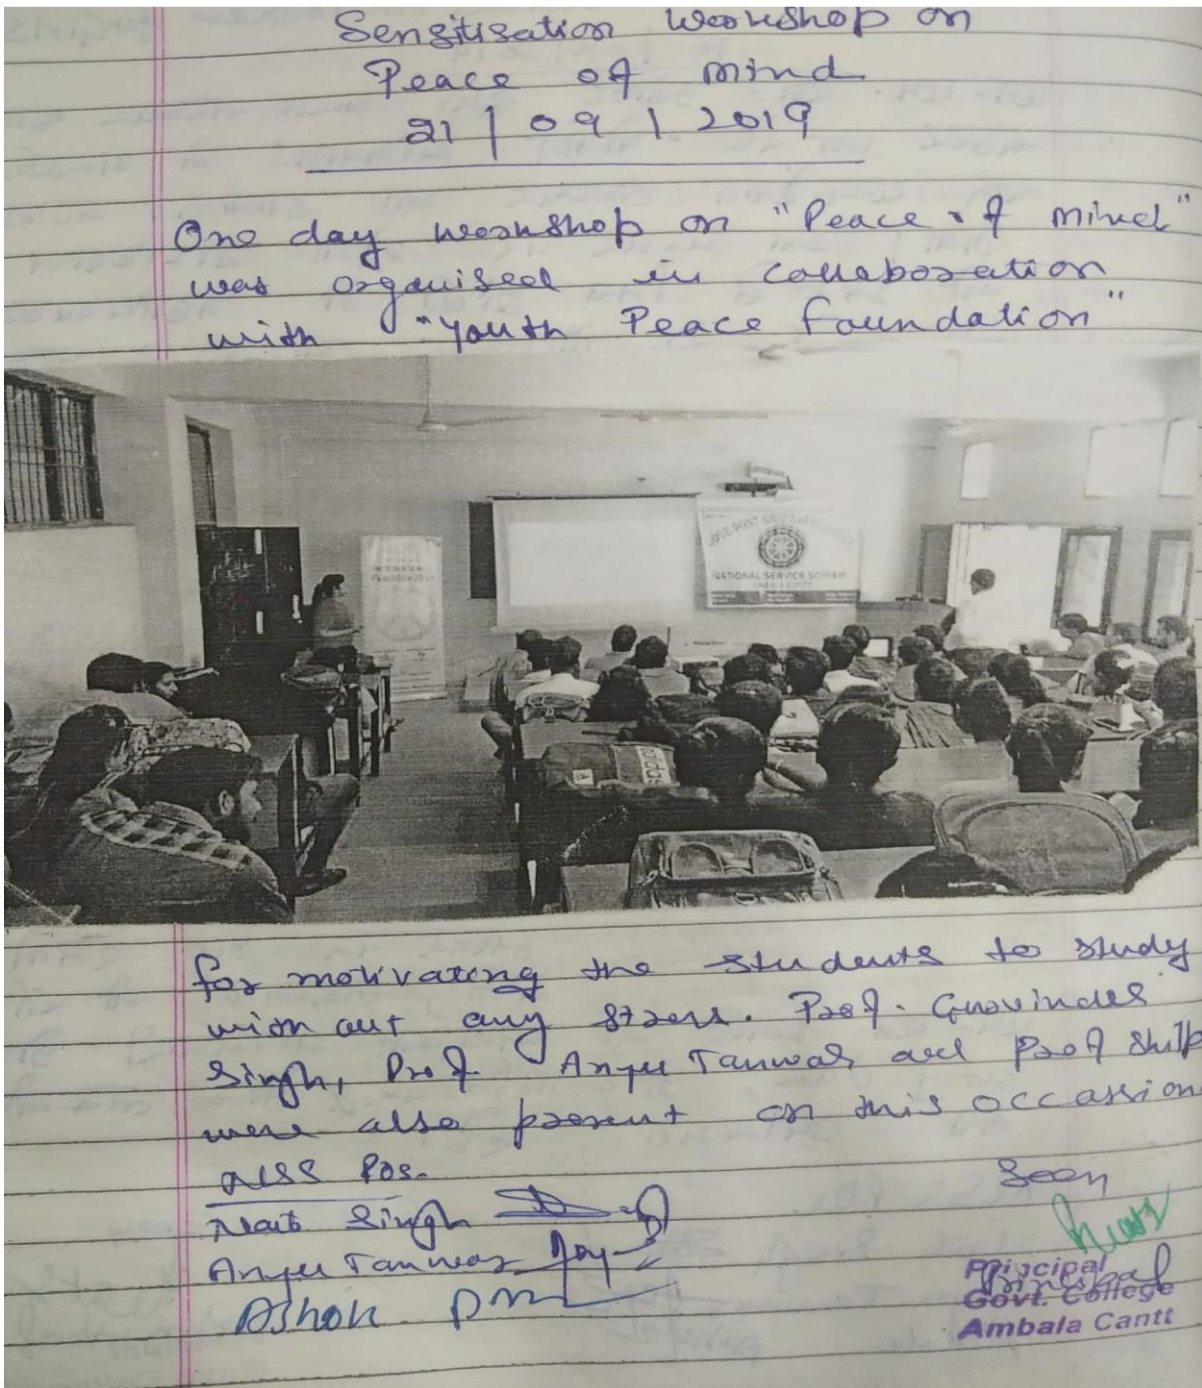 Sensitisation Workshop on
Peace of mind
21 | 09 | 2019
One day workshop on "Peace of mind"
was organised in collaboration
with "Youth Peace Foundation"
GOVT. POST GRADUATE
NATIONAL SERVICE SCHEME
for motivating the students to study
with out any stress. Prof. Gurvinder
Singh, Prof. Anju Tanwar and Prof Shilp
were also present on this occassion
NSS POs.
Naib Singh
Anju Tanwar
Ashok
Seen
Principal
Principal
Govt. College
Ambala Cantt